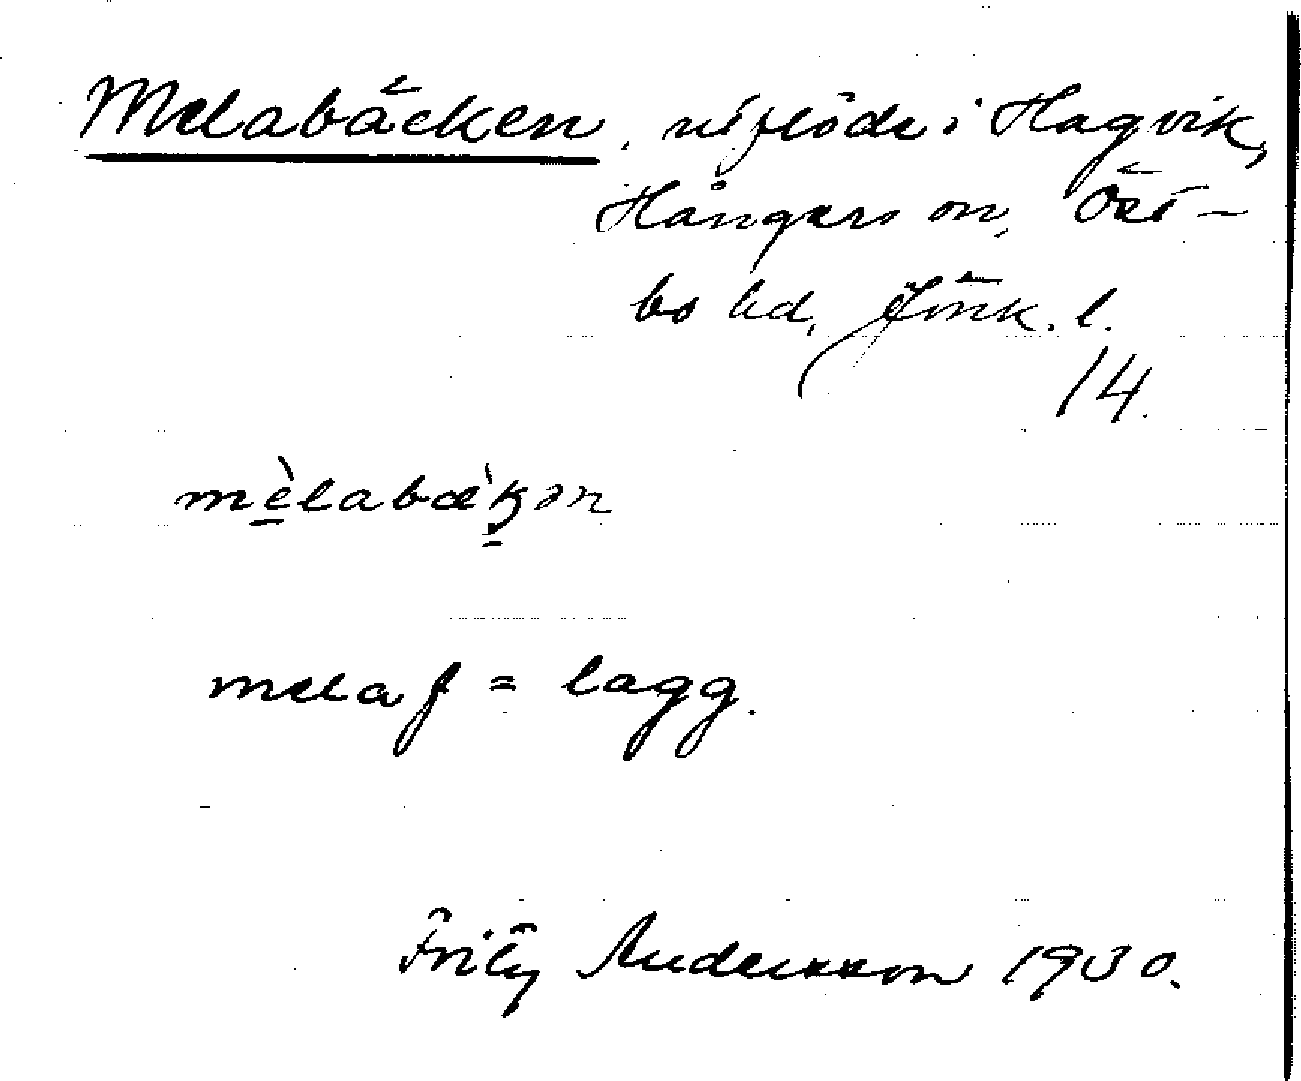 Melabäcken, utflöde i Hagvik,
Hångers sn, Öst-
bo hd, Jönk. l.
14.
mèlabækən
mela f = lagg.
Fritz Andersson 1930.